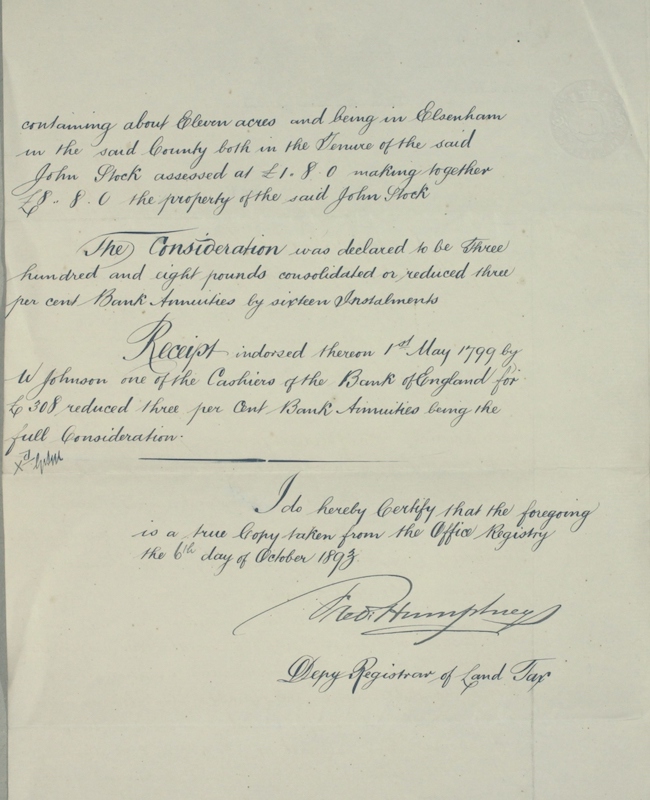 containing about Eleven acres and being in Elsenham
in the said County both in the Tenure of the said
John Stock assessed at £1. 8. 0 making together
£8. 8. 0 the property of the said John Stock
The Consideration was declared to be Three
hundred and eight pounds consolidated or reduced three
per cent Bank Annuities by sixteen Instalments
Receipt indorsed thereon 1st May 1799 by
W Johnson one of the Cashiers of the Bank of England for
£308 reduced three per Cent Bank Annuities being the
full Consideration.
Xd
I do hereby Certify that the foregoing
is a true Copy taken from the Office Registry
the 6th day of October 1893.
Fredk: Humphreys
Depy Registrar of Land Tax